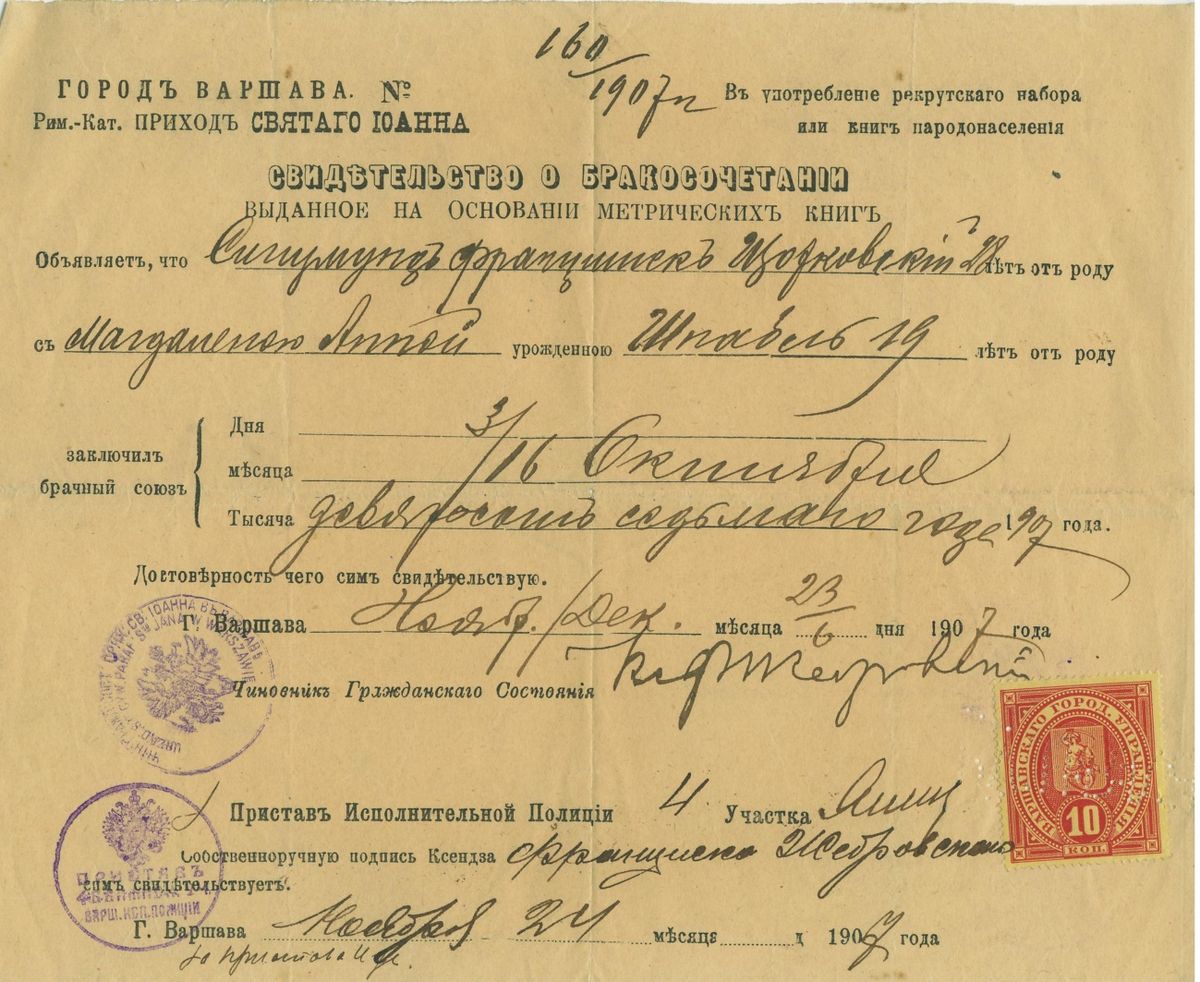 160/1907 г.
ГОРОДЪ ВАРШАВА. №
Рим.-Кат. ПРИХОДЪ СВЯТАГО ІОАННА
Въ употребленіе рекрутскаго набора
или книгъ народонаселенія
СВИДѢТЕЛЬСТВО О БРАКОСОЧЕТАНІИ
ВЫДАННОЕ НА ОСНОВАНІИ МЕТРИЧЕСКИХЪ КНИГЪ
Объявляетъ, что Сигизмундъ Францишекъ 22 лѣтъ отъ роду
съ Магдаленою Анной урожденною 19 лѣтъ отъ роду
заключилъ
брачный союзъ
Дня 3/16
мѣсяца Октября
Тысяча девятьсотъ седьмаго года 1907 года.
Достовѣрность чего симъ свидѣтельствую.
Г. Варшава Нояб./Дек. мѣсяца 23/6 дня 1907 года
Чиновникъ Гражданскаго Состоянія
СВ. ІОАННА ВЪ ВАРШАВѢ
PARAF. Ś-W JANA W WARSZAWIE
ВАРШАВСКАГО ГОРОД. УПРАВЛЕНІЯ
10
КОП.
Приставъ Исполнительной Полиціи 4 Участка
Собственноручную подпись Ксендза Францишка Жебровскаго
симъ свидѣтельствуетъ.
ПРИСТАВЪ
ВАРШ. ИСП. ПОЛИЦІИ
Г. Варшава Ноября 24 мѣсяца д 1907 года